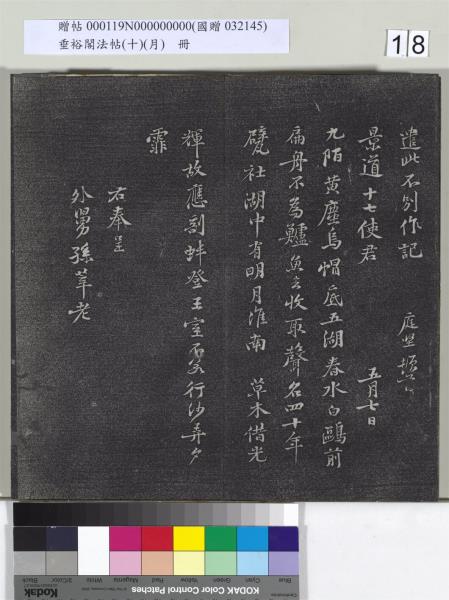 贈帖 000119N000000000(國贈 032145)
垂裕閣法帖(十)(月) 冊
18
遣此不別作記 庭堅頓首
景道十七使君 五月七日
九陌黄塵烏帽底五湖春水白鷗前
扁舟不為鱸魚去收取聲名四十年
甓社湖中有明月淮南草木借光
輝故應剖蚌登王室不若行沙弄夕
霏
右奉呈
外舅孫莘老
Blue Cyan Green Yellow Red Magenta White 3/Color Black
KODAK Color Control Patches